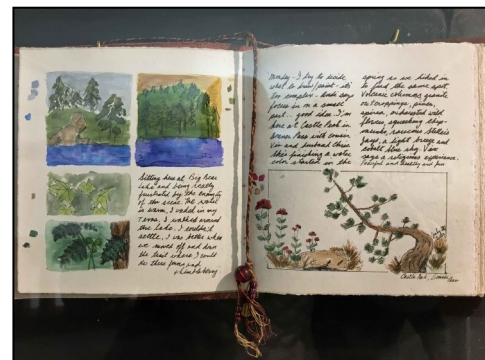 Sitting here at Big Bear
Lake and being really
frustrated by the enormity
of the scene. The water
is warm, I waded in my
Tevas, I walked around
the lake. I couldn't
settle. I was better when
we moved off and down
the boat where I could
be there
Monday - I try to decide
what to draw/paint - it's
too complex - Linda says
focus in on a small
part... good idea. I'm
here at Castle Park in
Donner Pass with cousin
Viv and husband
She's finishing a water
color started in the
spring so we hiked in
to find the same spot.
Volcanic columns, granite
outcroppings, pines,
squeaking chip-
munks, raucous Stellar
Jays, a light breeze and
cobalt blue sky. Viv
says a religious experience.
Joyful and
Castle Park, Donner